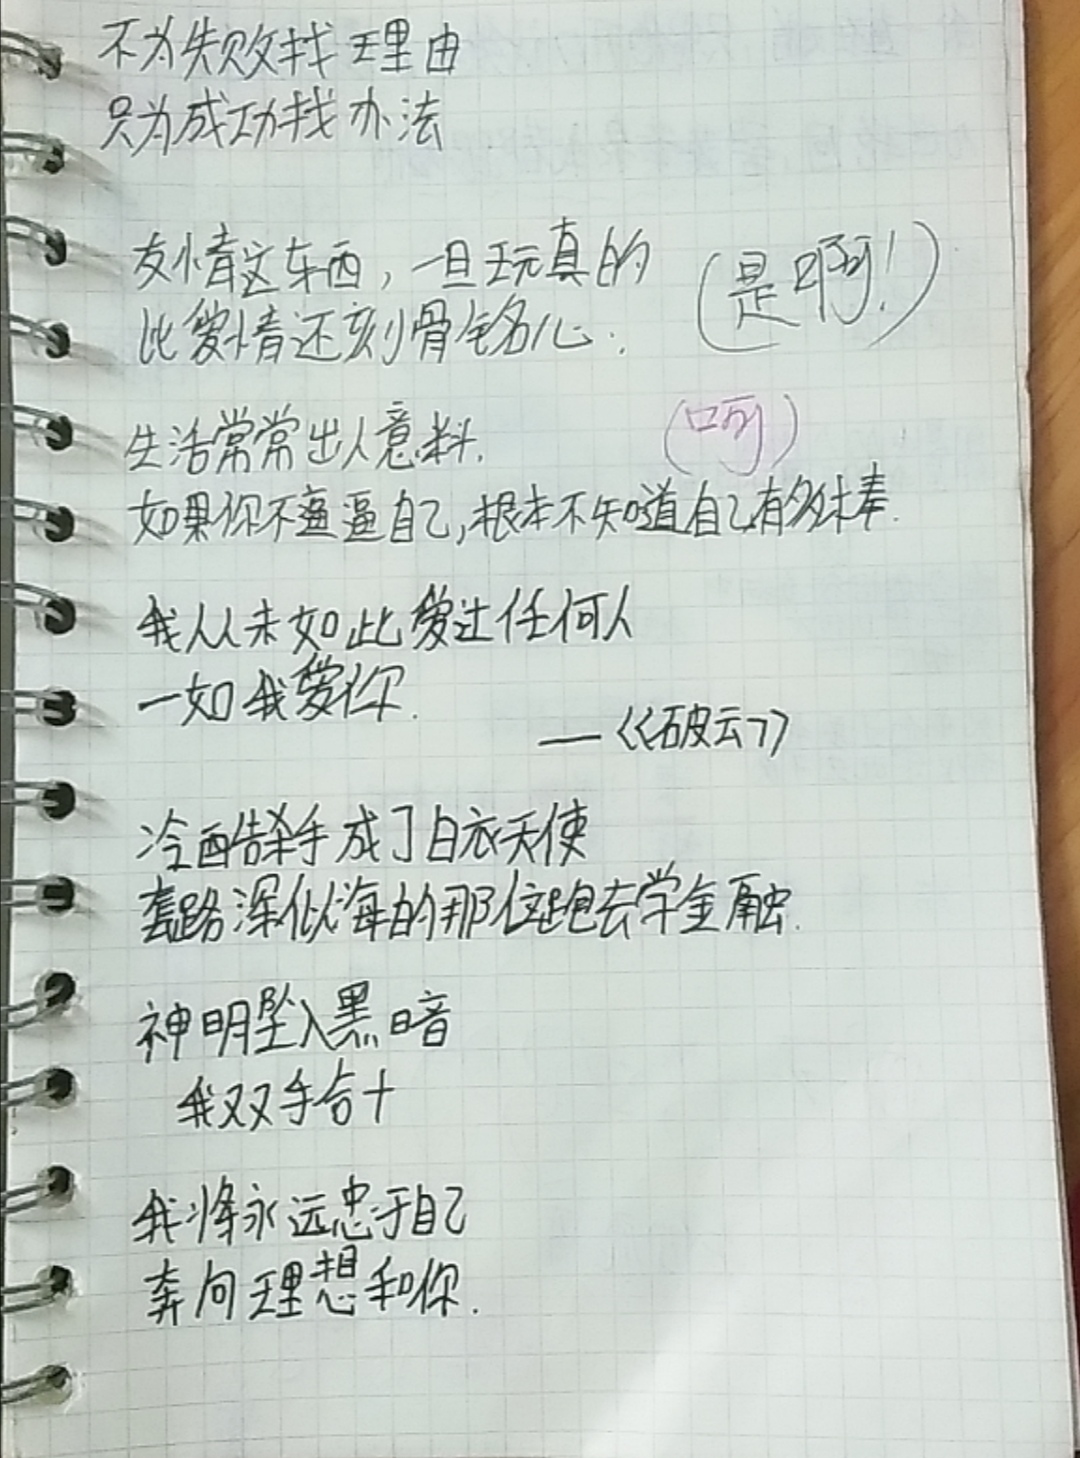 不为失败找理由
只为成功找办法
友情这东西，一旦玩真的 （是啊！）
比爱情还刻骨铭心.
生活常常出人意料. （呵）
如果你不逼逼自己,根本不知道自己有多棒.
我从未如此爱过任何人
一如我爱你.
——《破云》
冷酷杀手成了白衣天使
套路深似海的那位跑去学金融.
神明坠入黑暗
我双手合十
我将永远忠于自己
奔向理想和你.